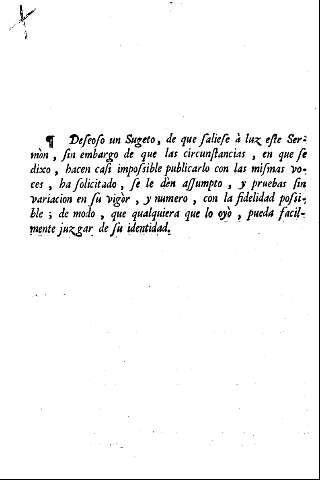 ¶ Deſeoſo un Sugeto, de que ſalieſe à luz eſte Ser-
mòn, ſin embargo de que las circunſtancias, en que ſe
dixo, hacen caſi impoſsible publicarlo con las miſmas vo-
ces, ha ſolicitado, ſe le dèn aſſumpto, y pruebas ſin
variacion en ſu vigòr, y numero, con la fidelidad poſsi-
ble; de modo, que qualquiera que lo oyò, pueda facil-
mente juzgar de ſu identidad.